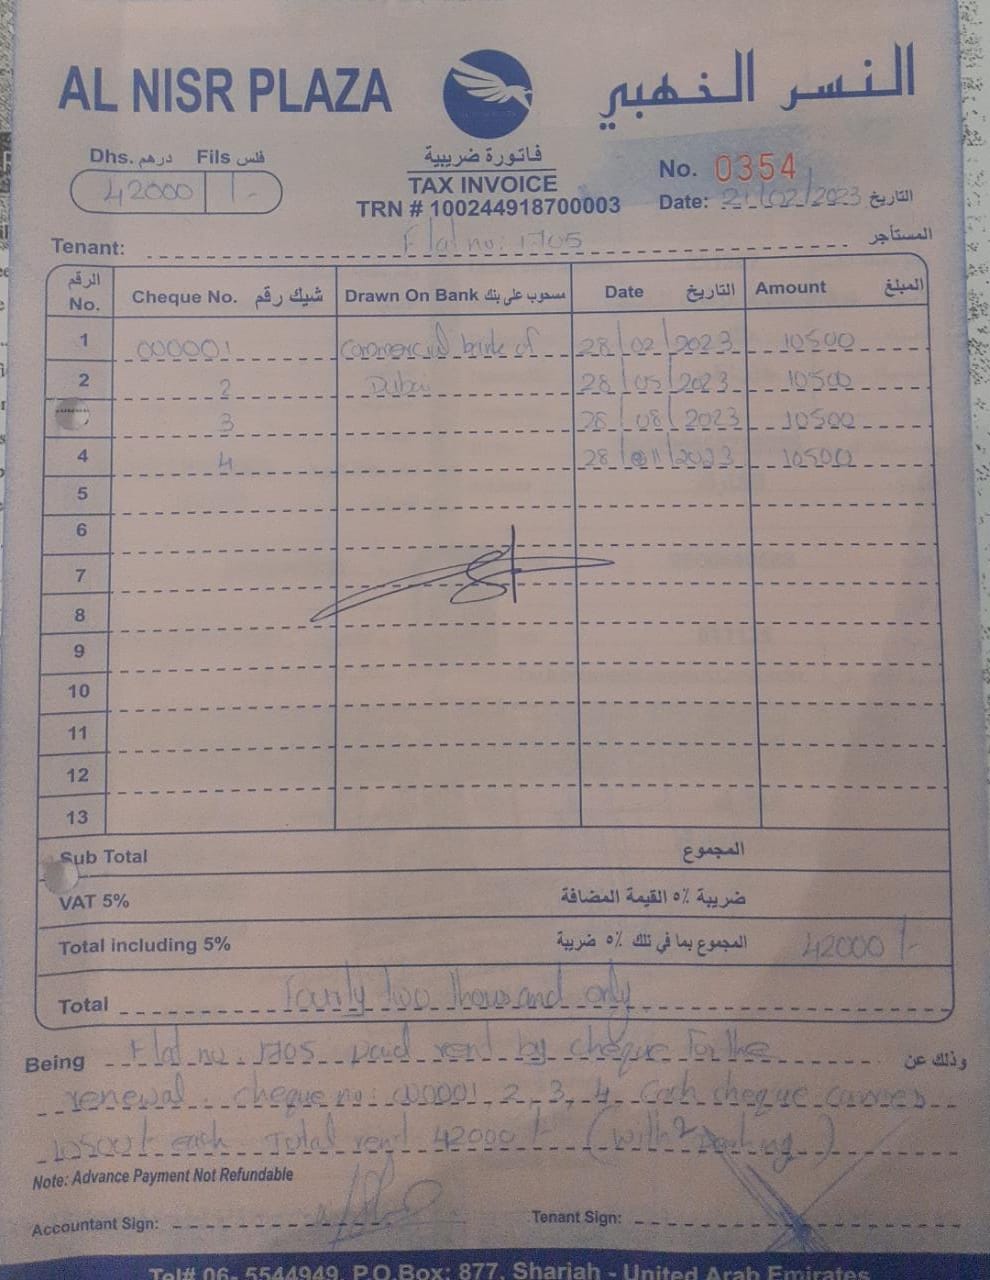 AL NISR PLAZA
النسر الخهبي
Dhs. درهم Fils فلس
42000 /-
فاتورة ضريبية
TAX INVOICE
TRN # 100244918700003
No. 0354
Date: 21/02/2023 التاريخ
Tenant: Flat no: 1705 المستأجر
الرقم No. Cheque No. شيك رقم Drawn On Bank مسحوب على بنك Date التاريخ Amount المبلغ
1 000001 Commercial bank of 28/02/2023 10500
2 2 Dubai 28/05/2023 10500
3 28/08/2023 10500
4 4 28/11/2023 10500
5
6
7
8
9
10
11
12
13
Sub Total المجموع
VAT 5% ضريبة ٥٪ القيمة المضافة
Total including 5% المجموع بما في تلك ٥٪ ضريبة 42000/-
Total Fourty two thousand only
Being Flat no: 1705 paid rent by cheque for the وذلك عن
renewal. cheque no: 000001, 2, 3, 4 Each cheque carries
10500/- each Total rent 42000/- (with 2 parking)
Note: Advance Payment Not Refundable
Accountant Sign:
Tenant Sign:
Tel# 06- 5544949, P.O.Box: 877, Sharjah - United Arab Emirates